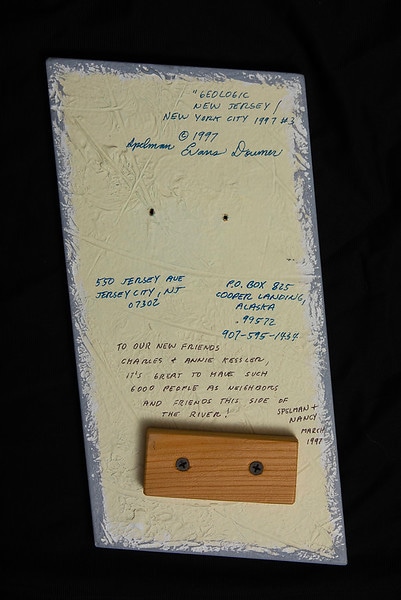 "GEOLOGIC
NEW JERSEY /
NEW YORK CITY 1997 #3
© 1997
Spelman Evans Downer
550 JERSEY AVE
JERSEY CITY, NJ
07302
P.O. BOX 825
COOPER LANDING,
ALASKA
99572
907-595-1434
TO OUR NEW FRIENDS
CHARLES + ANNIE KESSLER,
IT'S GREAT TO HAVE SUCH
GOOD PEOPLE AS NEIGHBORS
AND FRIENDS THIS SIDE OF
THE RIVER!
SPELMAN +
NANCY
MARCH
1997